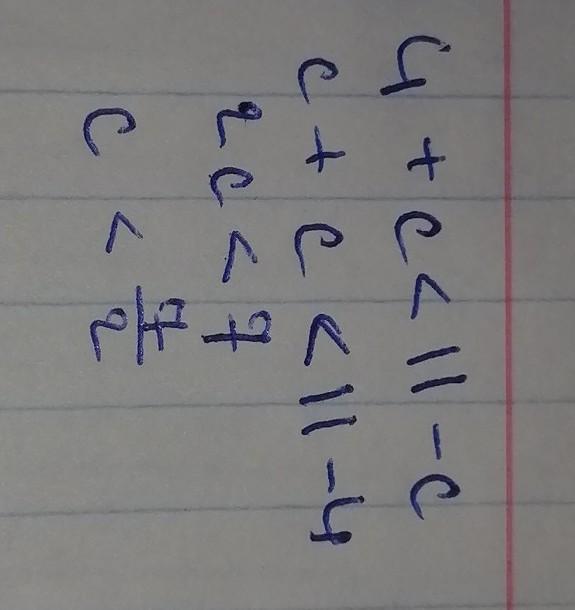 4 + c < 11 - c
c + c < 11 - 4
2c < 7
c < 7/2